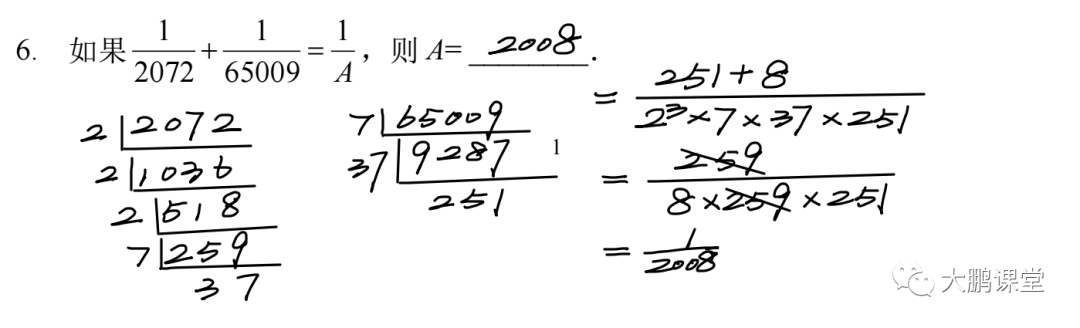 6. 如果 1/2072 + 1/65009 = 1/A ，则 A= 2008 .
2 2072
2 1036
2 518
7 259
37
7 65009
37 9287
251
1
= (251+8)/(2³×7×37×251)
= 259/(8×259×251)
= 1/2008
大鹏课堂